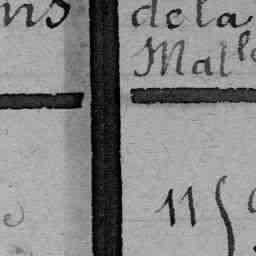 ns
de la
Malle
11